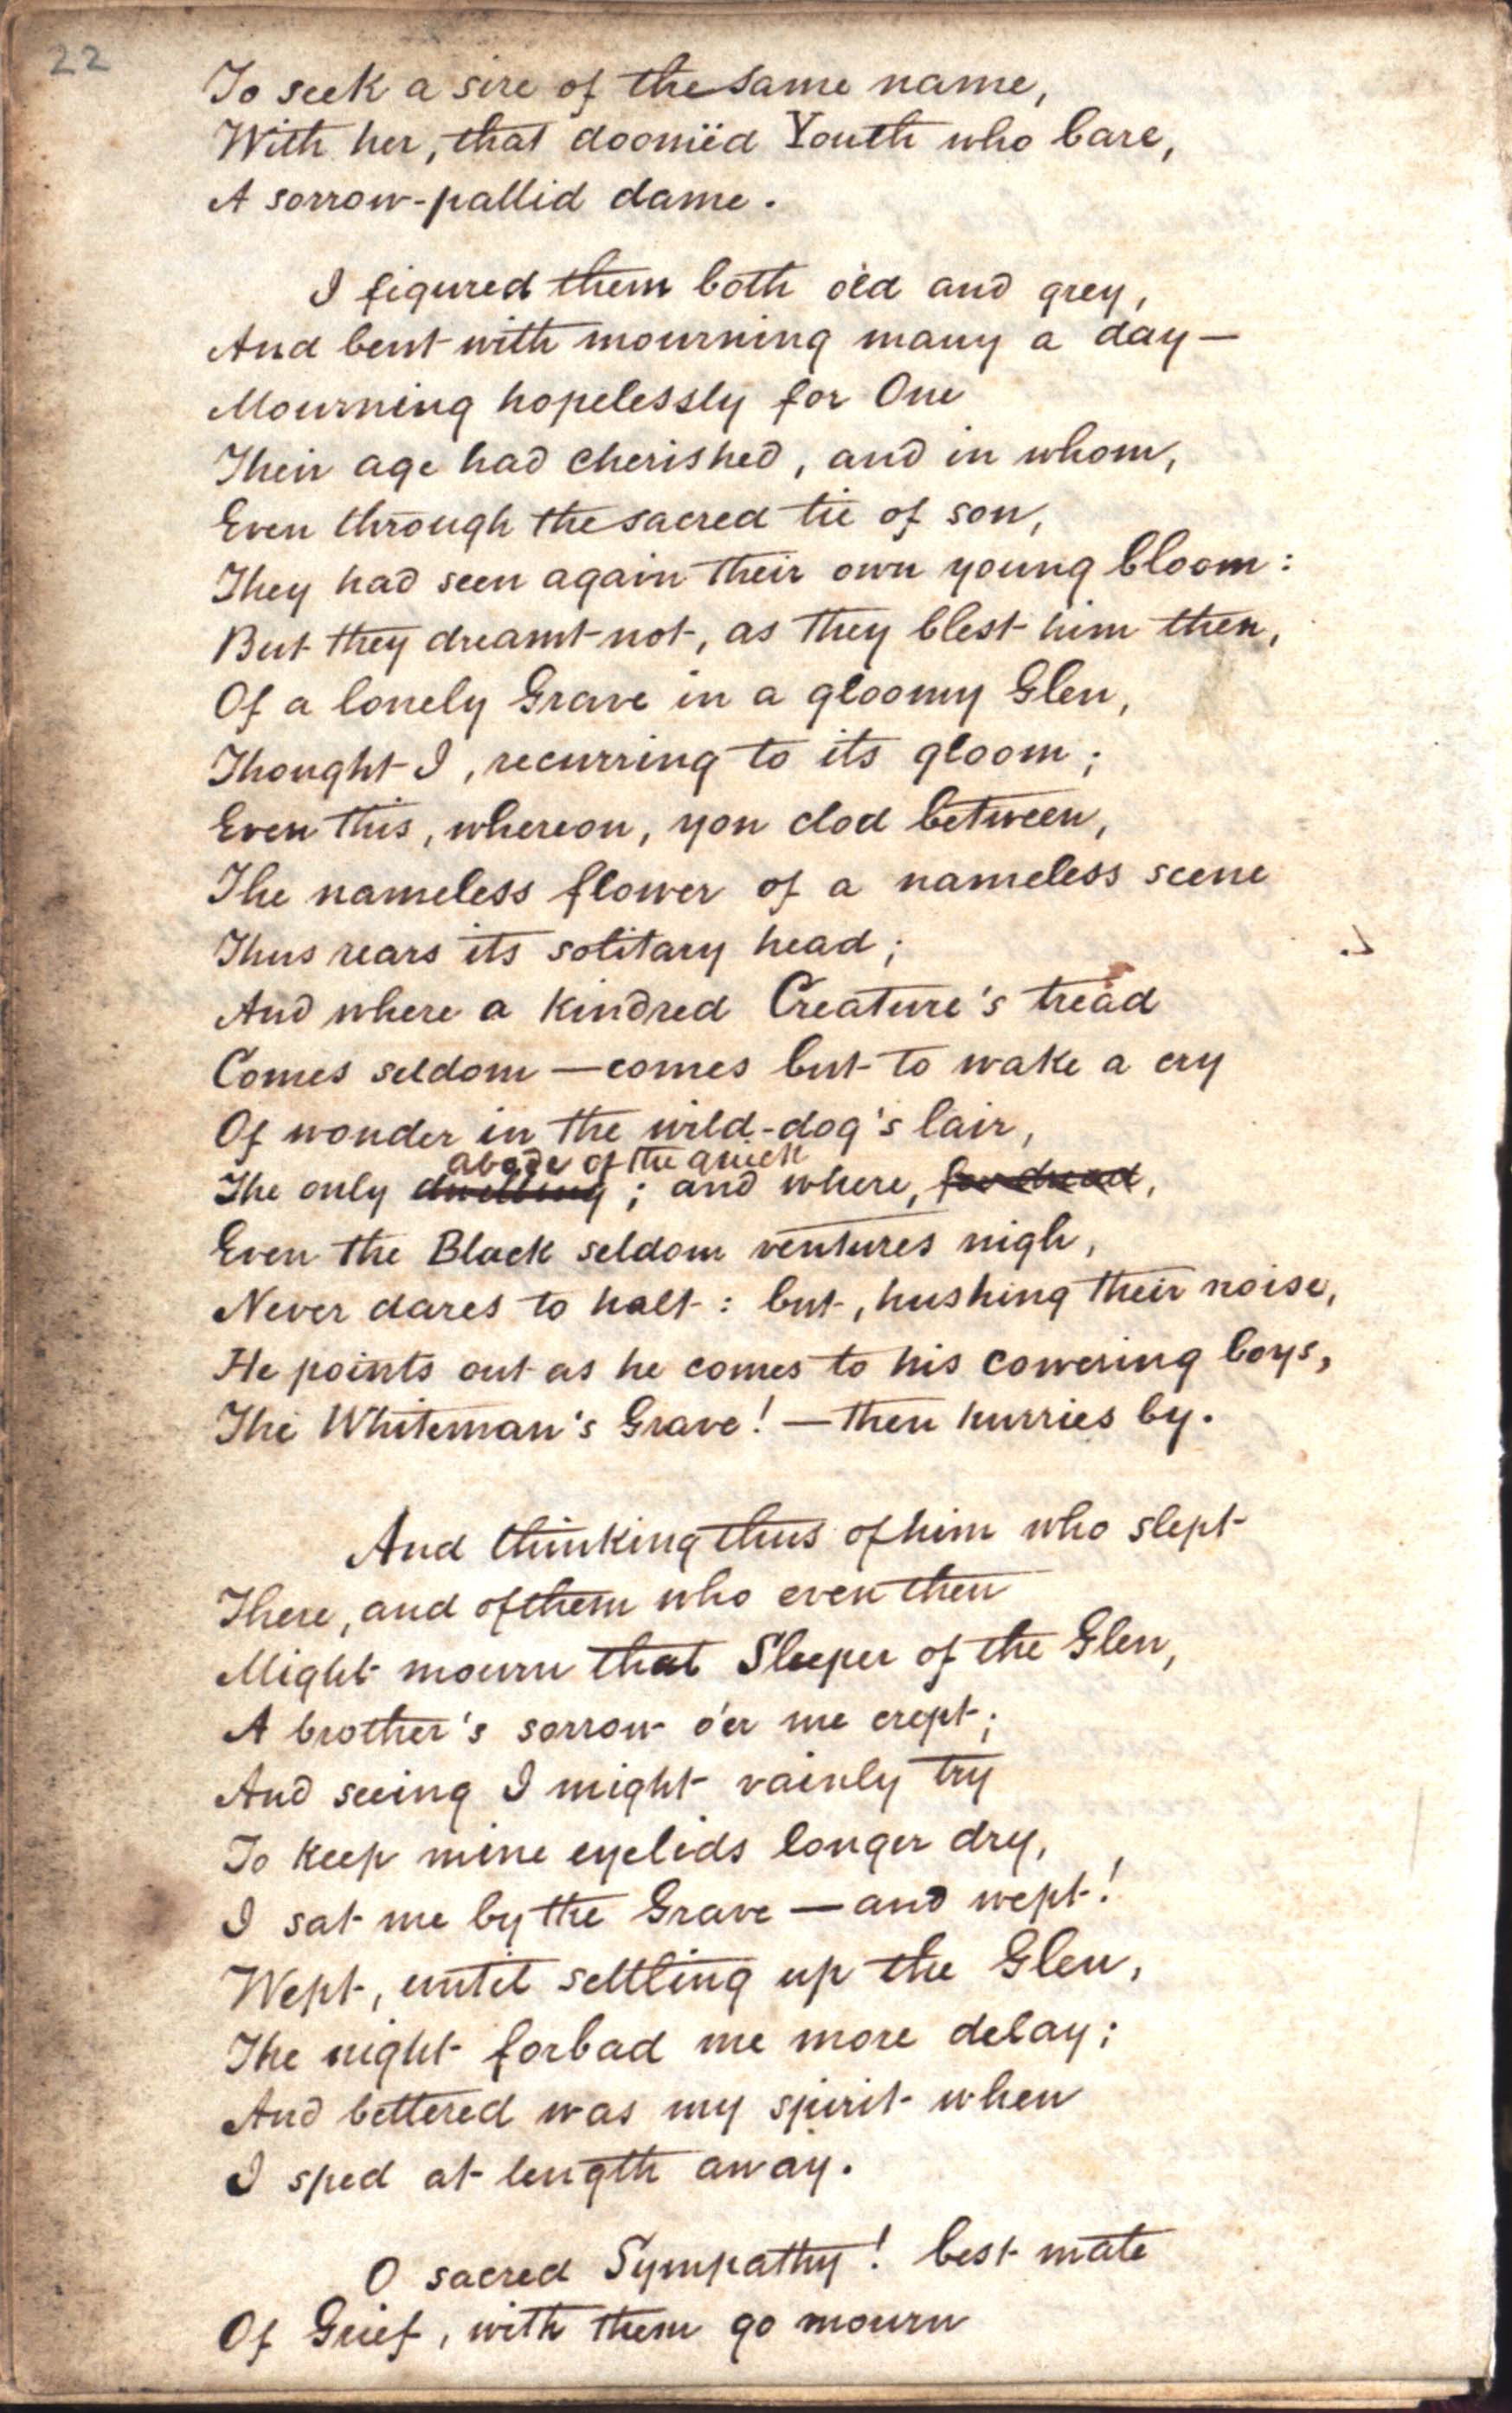 22
To seek a sire of the same name,
With her, that doomëd Youth who bare,
A sorrow-pallid dame.
I figured them both old and grey,
And bent with mourning many a day —
Mourning hopelessly for One
Their age had cherished, and in whom,
Even through the sacred tie of son,
They had seen again their own young bloom:
But they dreamt not, as they blest him then,
Of a lonely Grave in a gloomy Glen,
Thought I, recurring to its gloom;
Even this, whereon, yon clod between,
The nameless flower of a nameless scene
Thus rears its solitary head;
And where a kindred Creature's tread
Comes seldom — comes but to wake a cry
Of wonder in the wild-dog's lair,
abode of the quick
The only dwelling; and where, for dread,
Even the Black seldom ventures nigh,
Never dares to halt: but, hushing their noise,
He points out as he comes to his cowering boys,
The Whiteman's Grave! — then hurries by.
And thinking thus of him who slept
There, and of them who even then
Might mourn that Sleeper of the Glen,
A brother's sorrow o'er me crept;
And seeing I might vainly try
To keep mine eyelids longer dry,
I sat me by the Grave — and wept!
Wept, until settling up the Glen,
The night forbad me more delay;
And bettered was my spirit when
I sped at length away.
O sacred Sympathy! best mate
Of Grief, with them go mourn